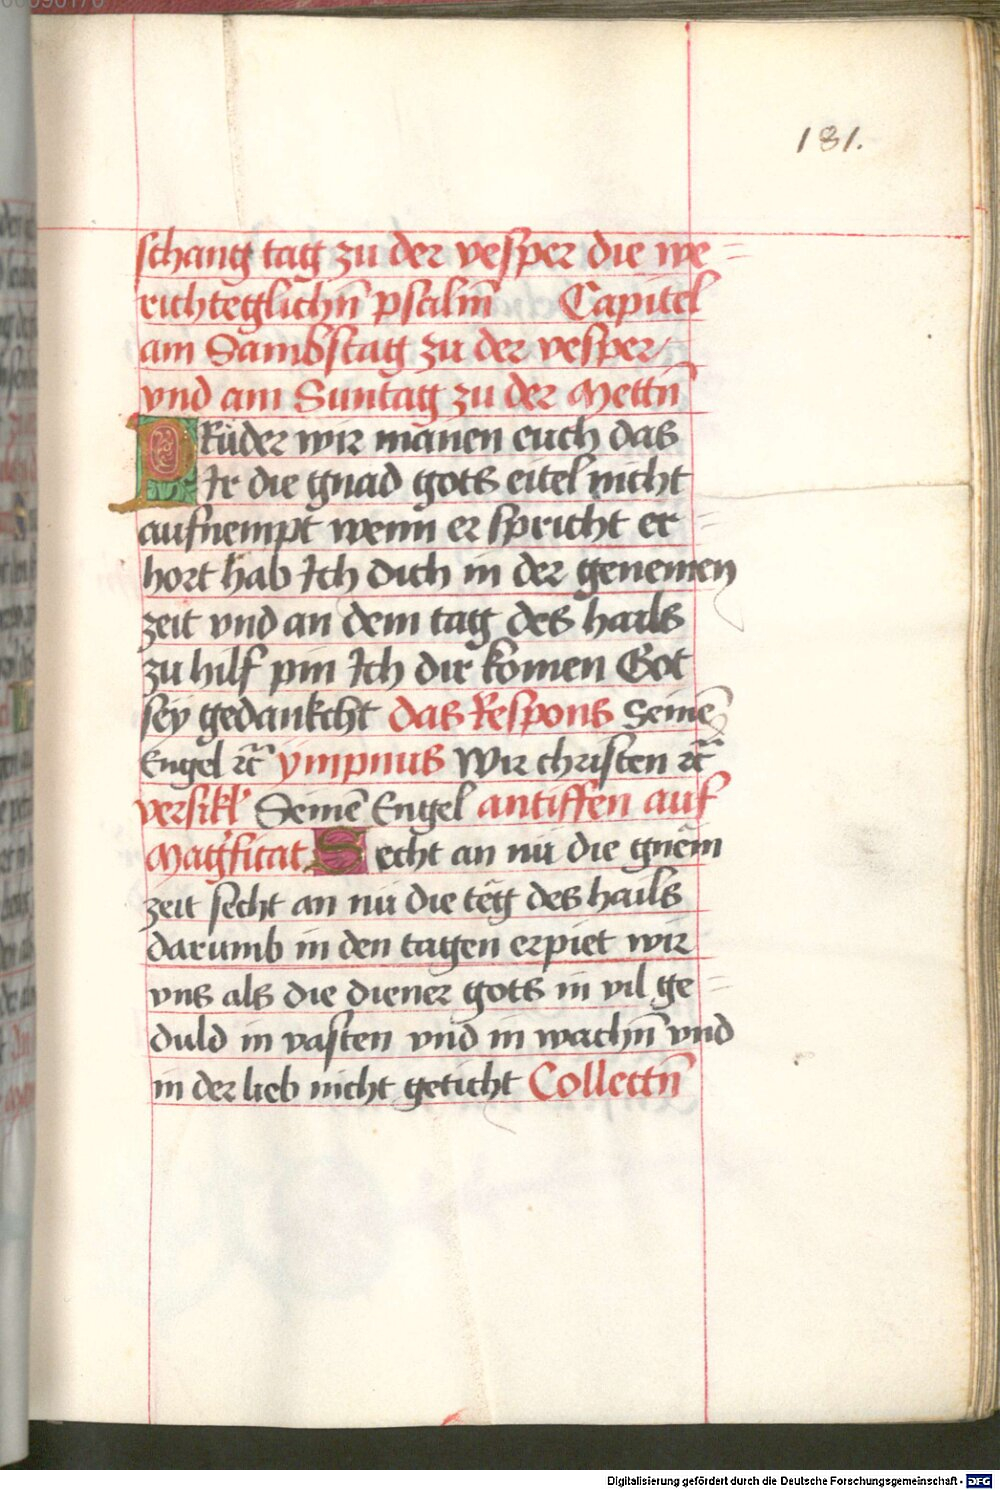 181.
schang tag zu der vesper die we=
richteglichn̄ psalm̄ Capitel
am Sambstag zu der vesper/
vnd am Suntag zu der Mettn̄
BRüder wir manen euch das
Ir die gnad gots eitel nicht
aufnempt wenn er spricht er=
hort hab Ich dich in der genemen
zeit vnd an dem tag des hails
zu hilf pin Ich dir komen Got
sey gedankcht das Respons Seinē
Engel ꝛc̄ ympnus Wir christen ꝛc̄
versikl' Seinē Engel antiffen auf
Mag̃ficat Secht an nü die gnēm
zeit secht an nü die tëg des hails
darumb in den tagen erpiet wir
vns als die diener gots in vil ge=
duld in vasten vnd in wachn̄ vnd
in der lieb nicht geticht Collectn̄
Digitalisierung gefördert durch die Deutsche Forschungsgemeinschaft - DFG